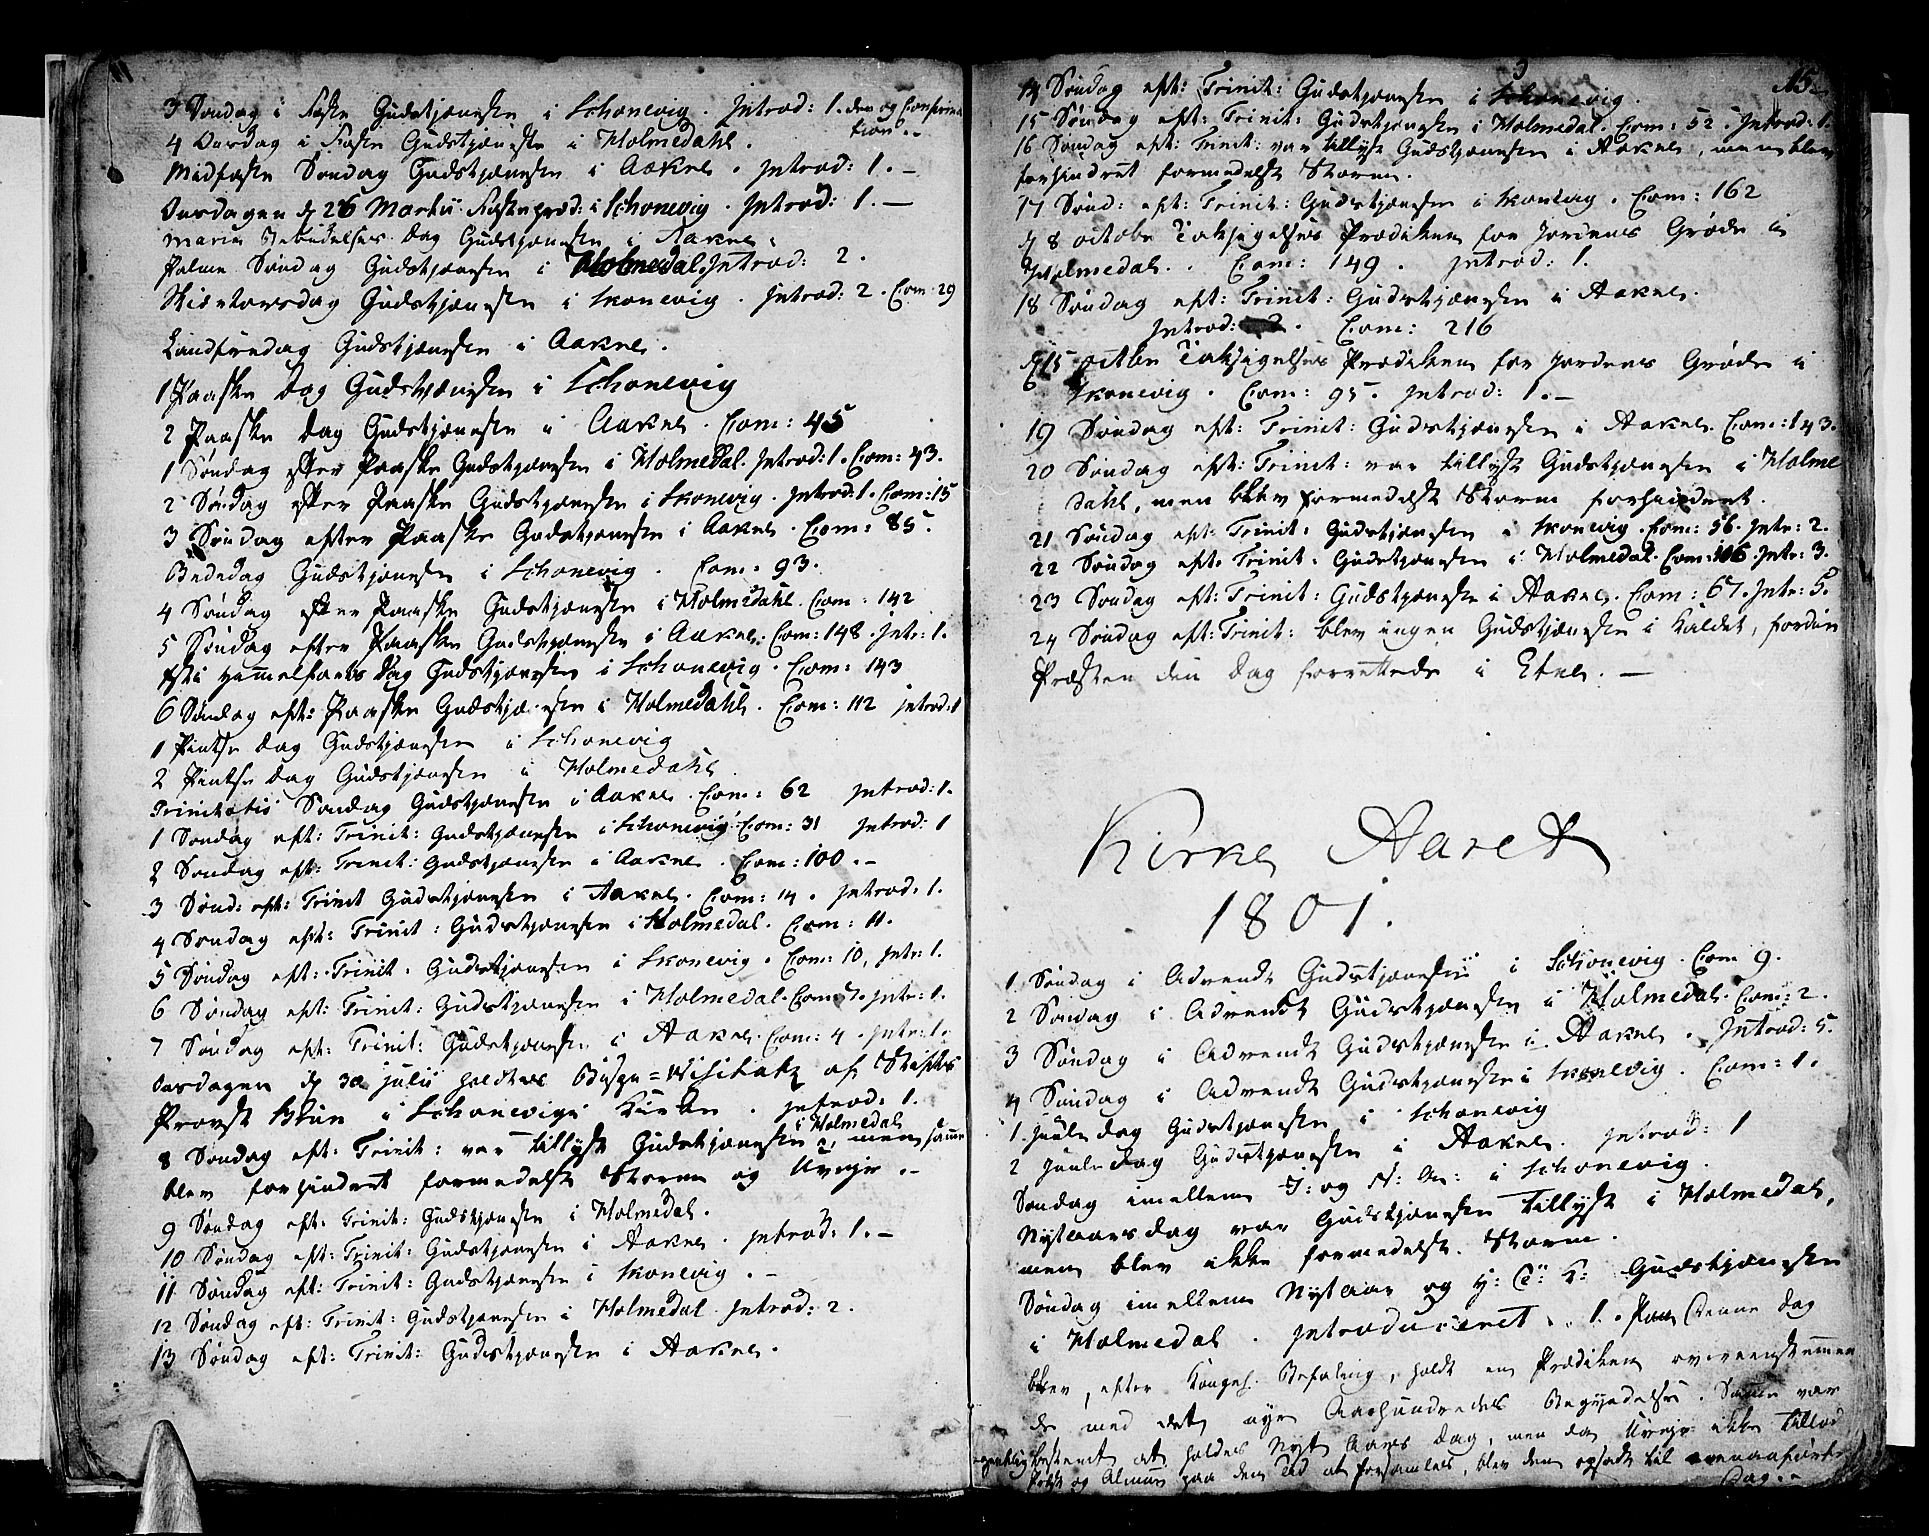 3 Søndag i Faste Gudstjænesten i Schonevig. Introd: 1. der og Confirma
tion.-
4 Onsdag i Faste Gudstjæneste i Holmedahl.
Midfaste Søndag Gudstjænesten i Aakre. Introd: 1.-
Onsdagen d 26 Martii Fastepræd: i Schonevig. Introd: 1.-
Mariæ Bebudelses Dag Gudstjænesten i Aakre.
Palme Søndag Gudstjænesten i Holmedal. Introd: 2.
Skiertorsdag Gudstjænesten i Skonevig. Introd: 2. Com: 29
Langfredag Gudstjænesten i Aakre.
1 Paaske Dag Gudstjænesten i Schonevig
2 Paaske Dag Gudstjænesten i Aakre. Com: 45
1 Søndag efter Paaske Gudstjænesten i Holmedal. Introd: 1. Com: 43.
2 Søndag efter Paaske Gudstjænesten i Skonevig. Introd: 1. Com: 15
3 Søndag efter Paaske Gudstjænesten i Aakre. Com: 85.
Bededag Gudstjænesten i Schonevig. Com: 93.
4 Søndag efter Paaske Gudstjæneste i Holmedahl. Com: 142
5 Søndag efter Paaske Gudstjæneste i Aakre. Com: 148. Intr: 1.
Xsti Himmelfarts Dag Gudstjænesten i Schonevig. Com: 143
6 Søndag eft: Paaske Gudstjænesten i Holmedahl. Com: 112 Introd: 1
1 Pintse Dag Gudstjænesten i Schonevig
2 Pintse Dag Gudstjænesten i Holmedahl
Trinitatis Søndag Gudstjænesten i Aakre. Com: 62 Introd: 1.
1 Søndag eft: Trinit: Gudstjænesten i Schonevig. Com: 31 Introd: 1
2 Søndag eft: Trinit: Gudstjænesten i Aakre. Com: 100.-
3 Sønd: eft: Trinit Gudstjænesten i Aakre. Com: 14. Introd: 1.
4 Søndag eft: Trinit: Gudstjænesten i Holmedal. Com: 11.
5 Søndag eft: Trinit: Gudstjænesten i Skonevig. Com: 10, Intr: 1.
6 Søndag eft: Trinit: Gudstjænesten i Holmedal. Com: 7. Intr: 1.
7 Søndag eft: Trinit: Gudstjænesten i Aakre. Com: 4. Intr: 1.
Onsdagen d 30 Julii holdtes Bispe=Visitatz af Stifts
Provst i Schonevigs Kirke. Introd: 1.
i Holmedal
8 Søndag eft: Trinit: var tillyst Gudstjænesten, men samme
blev forhindret formedelst Storm og Uvejr.-
9 Søndag eft: Trinit: Gudstjænesten i Holmedal.
10 Søndag eft: Trinit: Gudstjænesten i Aakre. Introd: 1.-
11 Søndag eft: Trinit: Gudstjænesten i Skonevig.-
12 Søndag eft: Trinit: Gudstjænesten i Holmedal. Introd: 2.
13 Søndag eft: Trinit: Gudstjænesten i Aakre.
15.
14 Søndag eft: Trinit: Gudstjænesten i Schonevig.
15 Søndag eft: Trinit: Gudstjænesten i Holmedal. Com: 52. Introd: 1.
16 Søndag eft: Trinit: var tillyst Gudstjænesten i Aakre, men blev
forhindret formedelst Storm.
17 Sønd: eft: Trinit: Gudstjænesten i Skonevig. Com: 162
d 8 octobr Taksigelses Prædiken for Jordens Grøde i
Holmedal. Com: 149. Introd: 1.
18 Søndag eft: Trinit: Gudstjænesten i Aakre.
Introd: 2. Com: 216
d 15 octbr Taksigelses Prædiken for Jordens Grøde i
Skonevig. Com: 95. Introd: 1.-
19 Søndag eft: Trinit: Gudstjænesten i Aakre. Com: 143.
20 Søndag eft: Trinit: var tillyst Gudstjænesten i Holme
dahl, men blev formedelst Storm forhindret.
21 Søndag eft: Trinit: Gudstjænesten i Skonevig. Com: 56. Intr: 2.
22 Søndag eft: Trinit: Gudstjænesten i Holmedal. Com: 106. Intr: 3.
23 Søndag eft: Trinit: Gudstjæneste i Aakre. Com: 67. Intr: 5.
24 Søndag eft: Trinit: blev ingen Gudstjænesten i Kaldet, fordi
Præsten den Dag forrettede i Etne.-
Kirke Aaret
1801.
1 Søndag i Advendt Gudstjænesten i Schonevig. Com 9.
2 Søndag i Advendt Gudstjænesten i Holmedal. Com: 2.
3 Søndag i Advendt Gudstjænesten i Aakre. Introd: 5.
4 Søndag i Advendt Gudstjænesten i Skonevig. Com: 1.
1. Juule dag Gudstjænesten i Schonevig
2 Juule dag Gudstjænesten i Aakre. Introd: 1
Søndag imellem J: og N: Aar: i Schonevig.
Nytaarsdag var Gudstjænesten tillyst i Holmedal,
men blev ikke formedelst Storm.
Søndag imellem Nytaar og H: 3: K: Gudstjænesten
i Holmedal. Introduceret 1. Paa denne Dag
blev, efter Kongel. Befaling, holdt en Prædiken overeenstemmen
de med det nye Aarhundredes Begyndelse. Samme var
egentlig bestemt at holdes Nyt Aars Dag, men da Uvejr ikke tillod
Præst og Almue paa den Tid at forsamles, blev den opsadt til ovenanførte
Dag.-